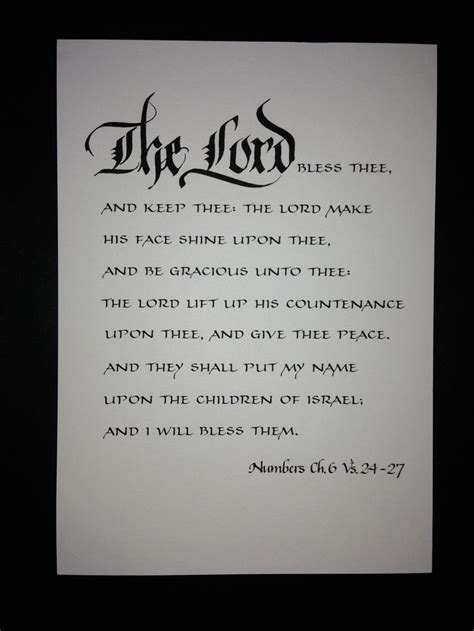 The Lord BLESS THEE,
AND KEEP THEE: THE LORD MAKE
HIS FACE SHINE UPON THEE,
AND BE GRACIOUS UNTO THEE:
THE LORD LIFT UP HIS COUNTENANCE
UPON THEE, AND GIVE THEE PEACE.
AND THEY SHALL PUT MY NAME
UPON THE CHILDREN OF ISRAEL;
AND I WILL BLESS THEM.
Numbers Ch. 6 Vs. 24-27